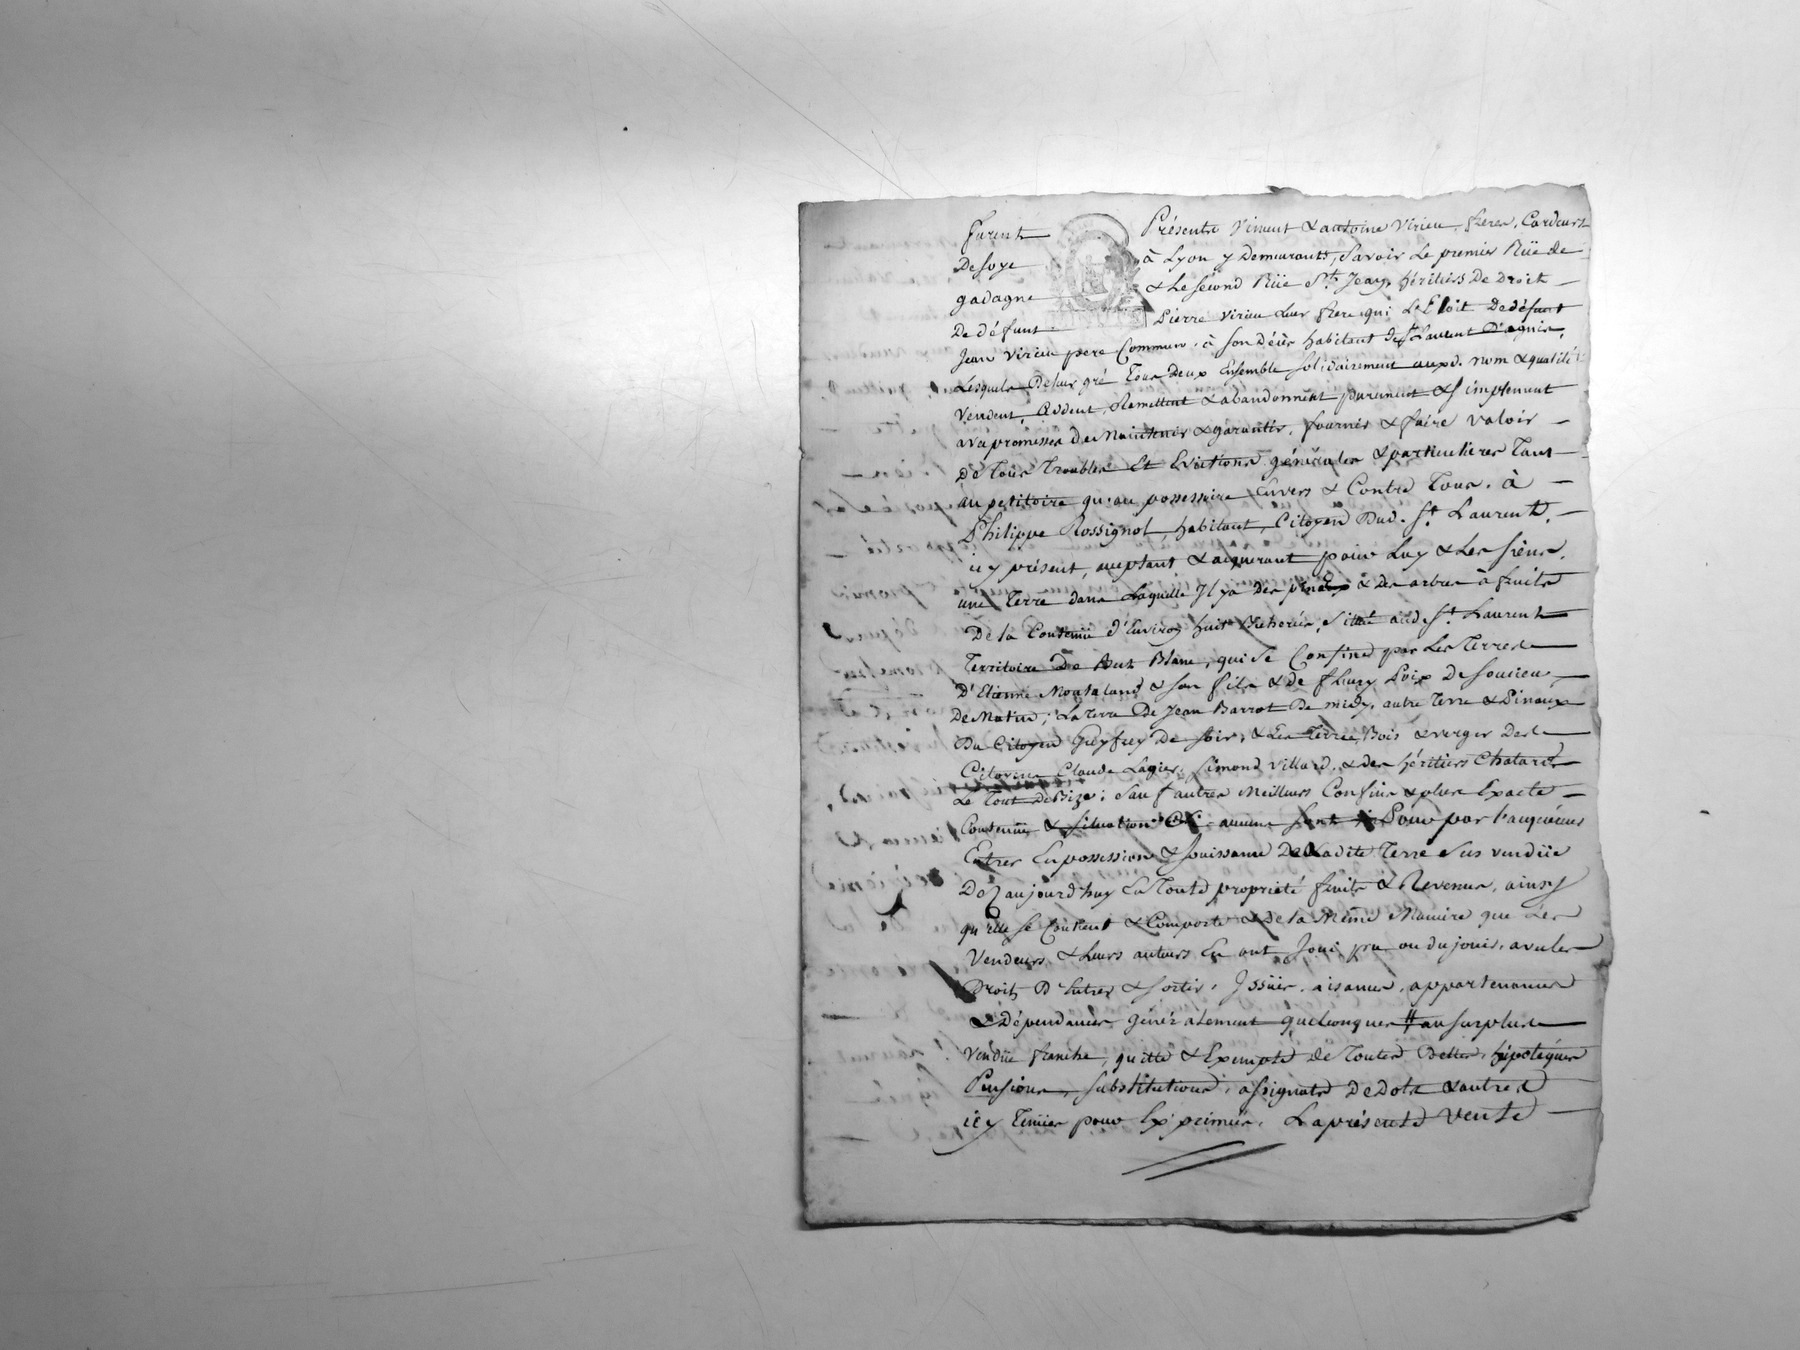 furent Présents Vincent & antoine Virieu, freres, Cardeurs
De soye à Lyon y Demeurants, savoir Le premier Rüe de
gadagne & Le second Rüe St. Jean, héritiers De Droit
De défunt Pierre Virieu Leur frere, qui L'Etoit De défunt
Jean Virieu pere Commun, à son décès habitant de St. Laurent D'agnis,
Lesquels De leur gré Tous Deux Ensemble solidairement auxd. nom & qualité
Vendent, Cedent, Remettent & abandonnent purement & simplement
avec promesses de Maintenir & garantir, fournir & faire Valoir
De Tous Troubles Et Evictions générales & particulieres Tant
au petitoire qu'au possessoire Envers & Contre Tous, à
Philippe Rossignol, habitant, Citoyen Dud. St. Laurent,
icy présent, acceptant & acquerant pour Luy & Les siens,
une Terre dans Laquelle Il y a Des & des arbres à fruits
De la Contenüe d'Environ huit Bicherées, située aud. St. Laurent
Territoire De Blanc, qui se Confine par Les Terres
D'Etienne & son fils & de fleury De soucieu,
De Matin; La Terre De Jean Barrot De midy, autre Terre &
Du Citoyen De soir, & Les Terres, Bois & verger Des
Citoyens Claude Lagier, Simond Villard, & des héritiers Chatard
Le Tout De Bize; sauf autres Meilleurs Confins & plus Exacte
Contenüe & situation aucuns sont Pour par l'acquéreur
Entrer En possession & Jouissance De Ladite Terre sus vendüe
Dez aujourd'huy En Toute propriété fruits & Revenus, ainsy
qu'elle se Contient & Comporte & de la Même Maniere que Les
Vendeurs & Leurs auteurs En ont Joui, pu ou du jouir, avec les
Droits D'Entrer & sortir, Issües, aisances, appartenances
& Dépendances généralement quelconques // au surplus
Vendüe franche, quitte & Exempte de Toutes Dettes, hipoteques
Pensions, substitutions, assignats De Dots & autres
icy Tenües pour Exprimées. La présente Vente